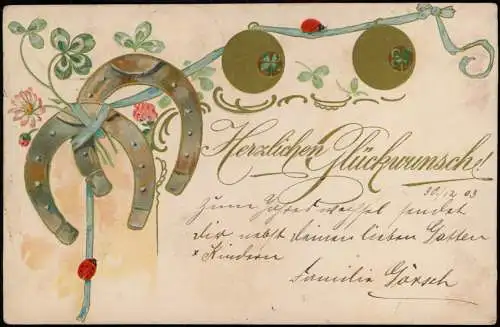 Herzlichen Glückwunsch!
30.12.03
zum Jahreswechsel sendet
dir nebst deinem lieben Gatten
+ Kindern
Familie Görsch